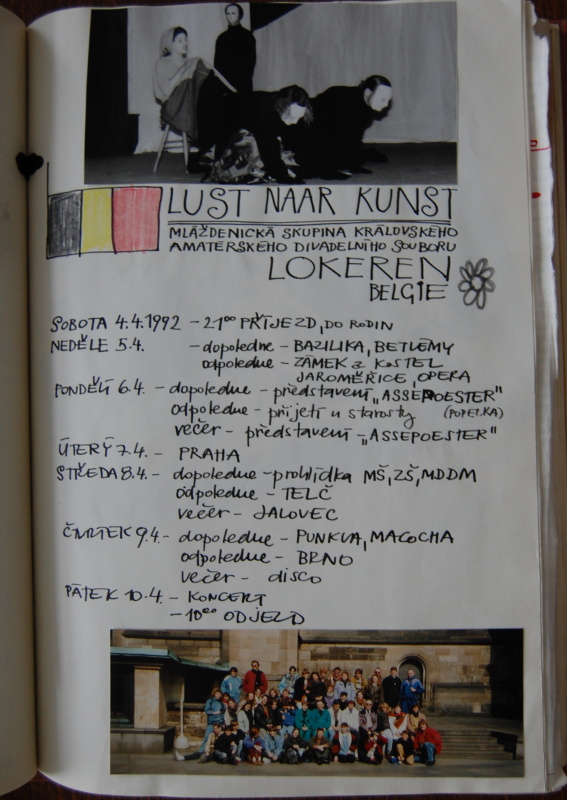 LUST NAAR KUNST
MLÁŽDENICKÁ SKUPINA KRÁLOVSKÉHO
AMATÉRSKÉHO DIVADELNÍHO SOUBORU
LOKEREN
BELGIE
SOBOTA 4.4.1992 - 21⁰⁰ PŘÍJEZD, DO RODIN
NEDĚLE 5.4. - dopoledne - BAZILIKA, BETLÉMY
odpoledne - ZÁMEK a KOSTEL
JAROMĚŘICE, OPERA
PONDĚLÍ 6.4. - dopoledne - představení „ASSEPOESTER"
odpoledne - přijetí u starosty (POPELKA)
večer - představení - „ASSEPOESTER"
ÚTERÝ 7.4. - PRAHA
STŘEDA 8.4. - dopoledne - prohlídka MŠ, ZŠ, MDDM
odpoledne - TELČ
večer - JALOVEC
ČTVRTEK 9.4. - dopoledne - PUNKVA, MACOCHA
odpoledne - BRNO
večer - disco
PÁTEK 10.4. - KONCERT
- 10⁰⁰ ODJEZD